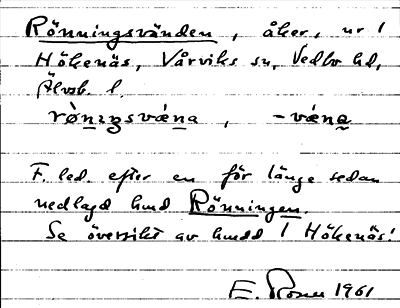 Rönningsvänden, åker, nr 1
Hökenäs, Vårviks sn, Vedbo hd,
Älvsb. l.
rò̀nıŋsvæ̀na, -væ̀na
F. led. efter en för länge sedan
nedlagd hmd Rönningen.
Se översikt av hmdd 1 Hökenäs!
E. Rosell 1961